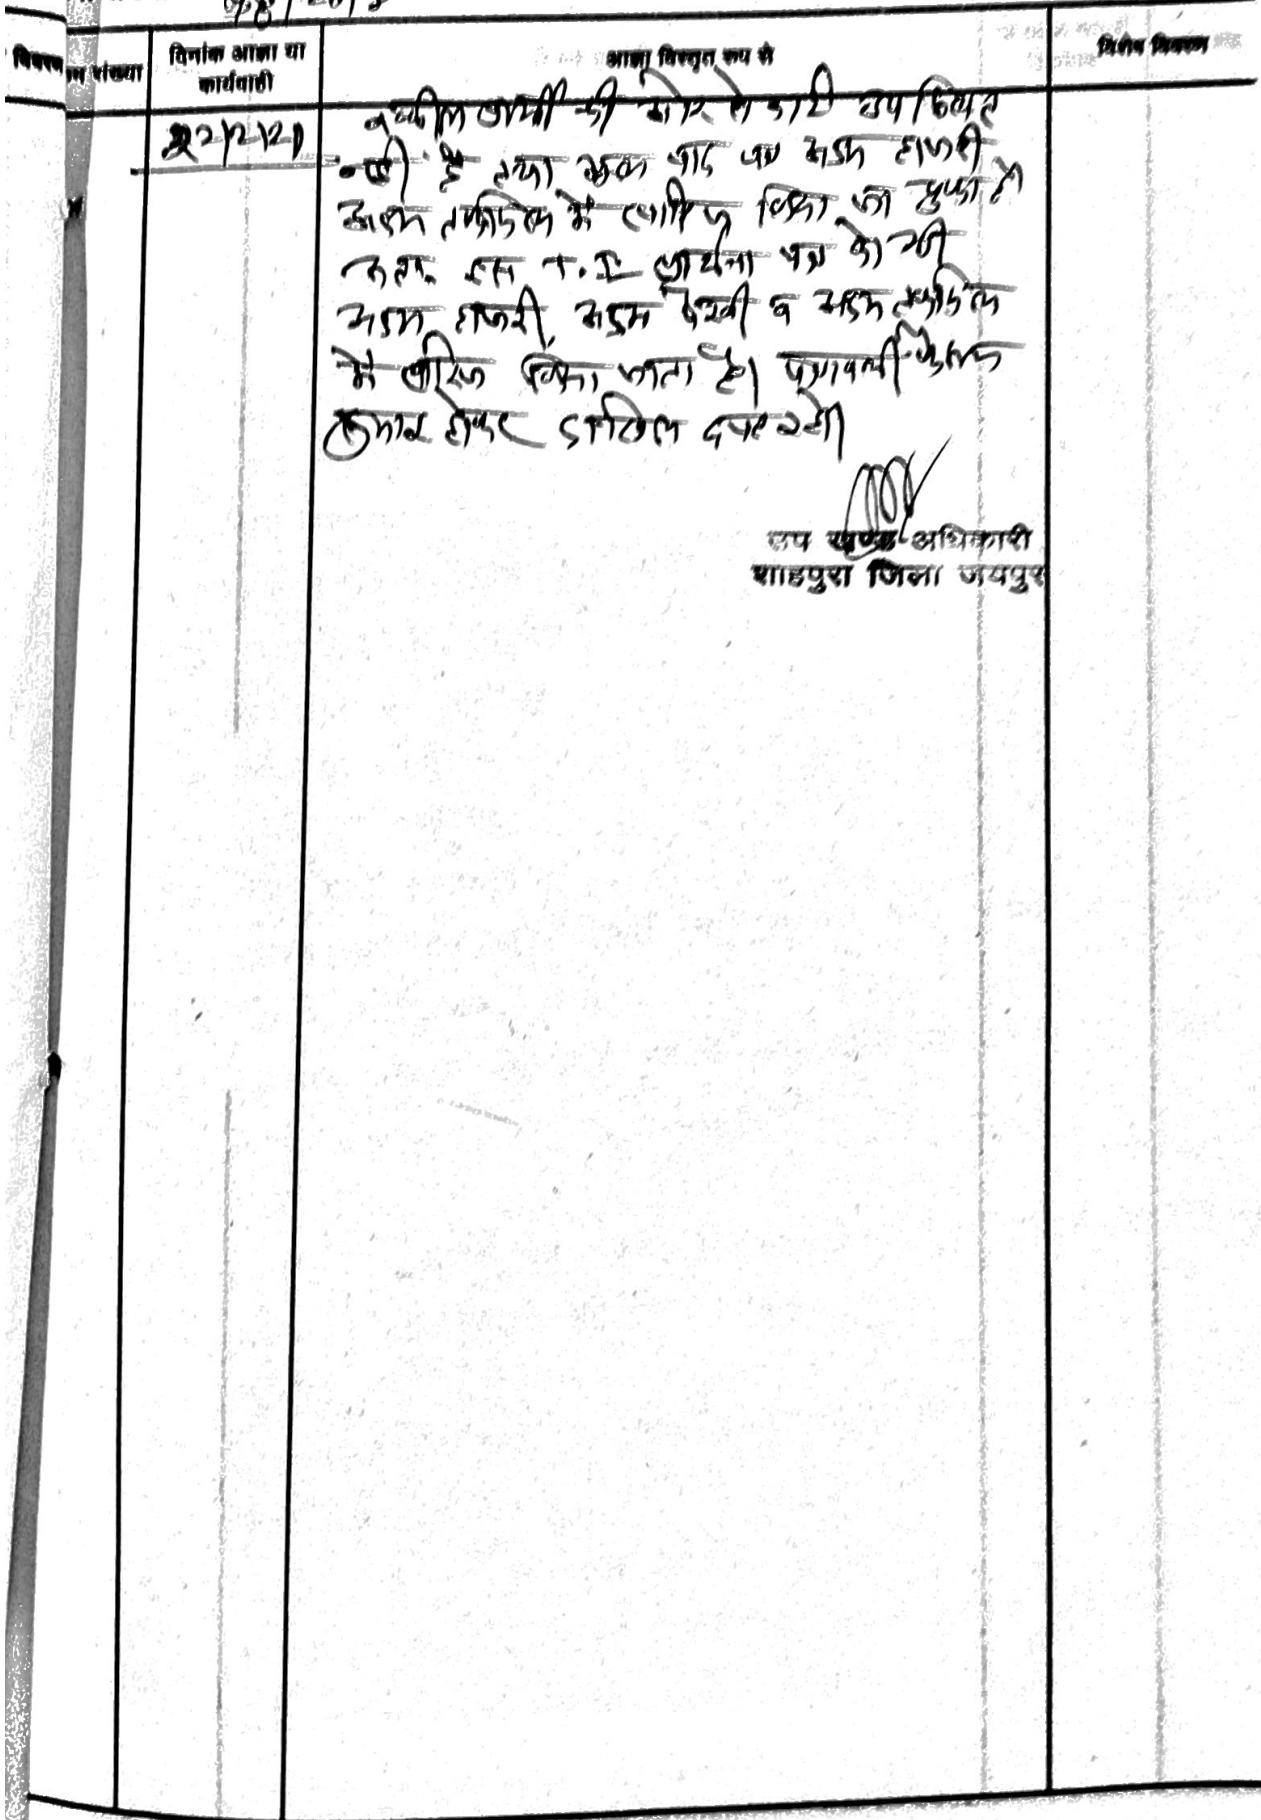 विवरण
संख्या
दिनांक आज्ञा या
कार्यवाही
आज्ञा विस्तृत रूप से
विशेष विवरण
22/2/21
वकील प्रार्थी की ओर से कोई उपस्थित
नहीं है तथा मूल वाद पत्र अदम हाजरी
अदम तकमील में खारिज किया जा चुका है
अतः इस T.I प्रार्थना पत्र को भी
अदम हाजरी, अदम पैरवी व अदम तकमील
में खारिज किया जाता है। पत्रावली फैसल
शुमार होकर दाखिल दफ्तर रहे।
उप खण्ड अधिकारी
शाहपुरा जिला जयपुर